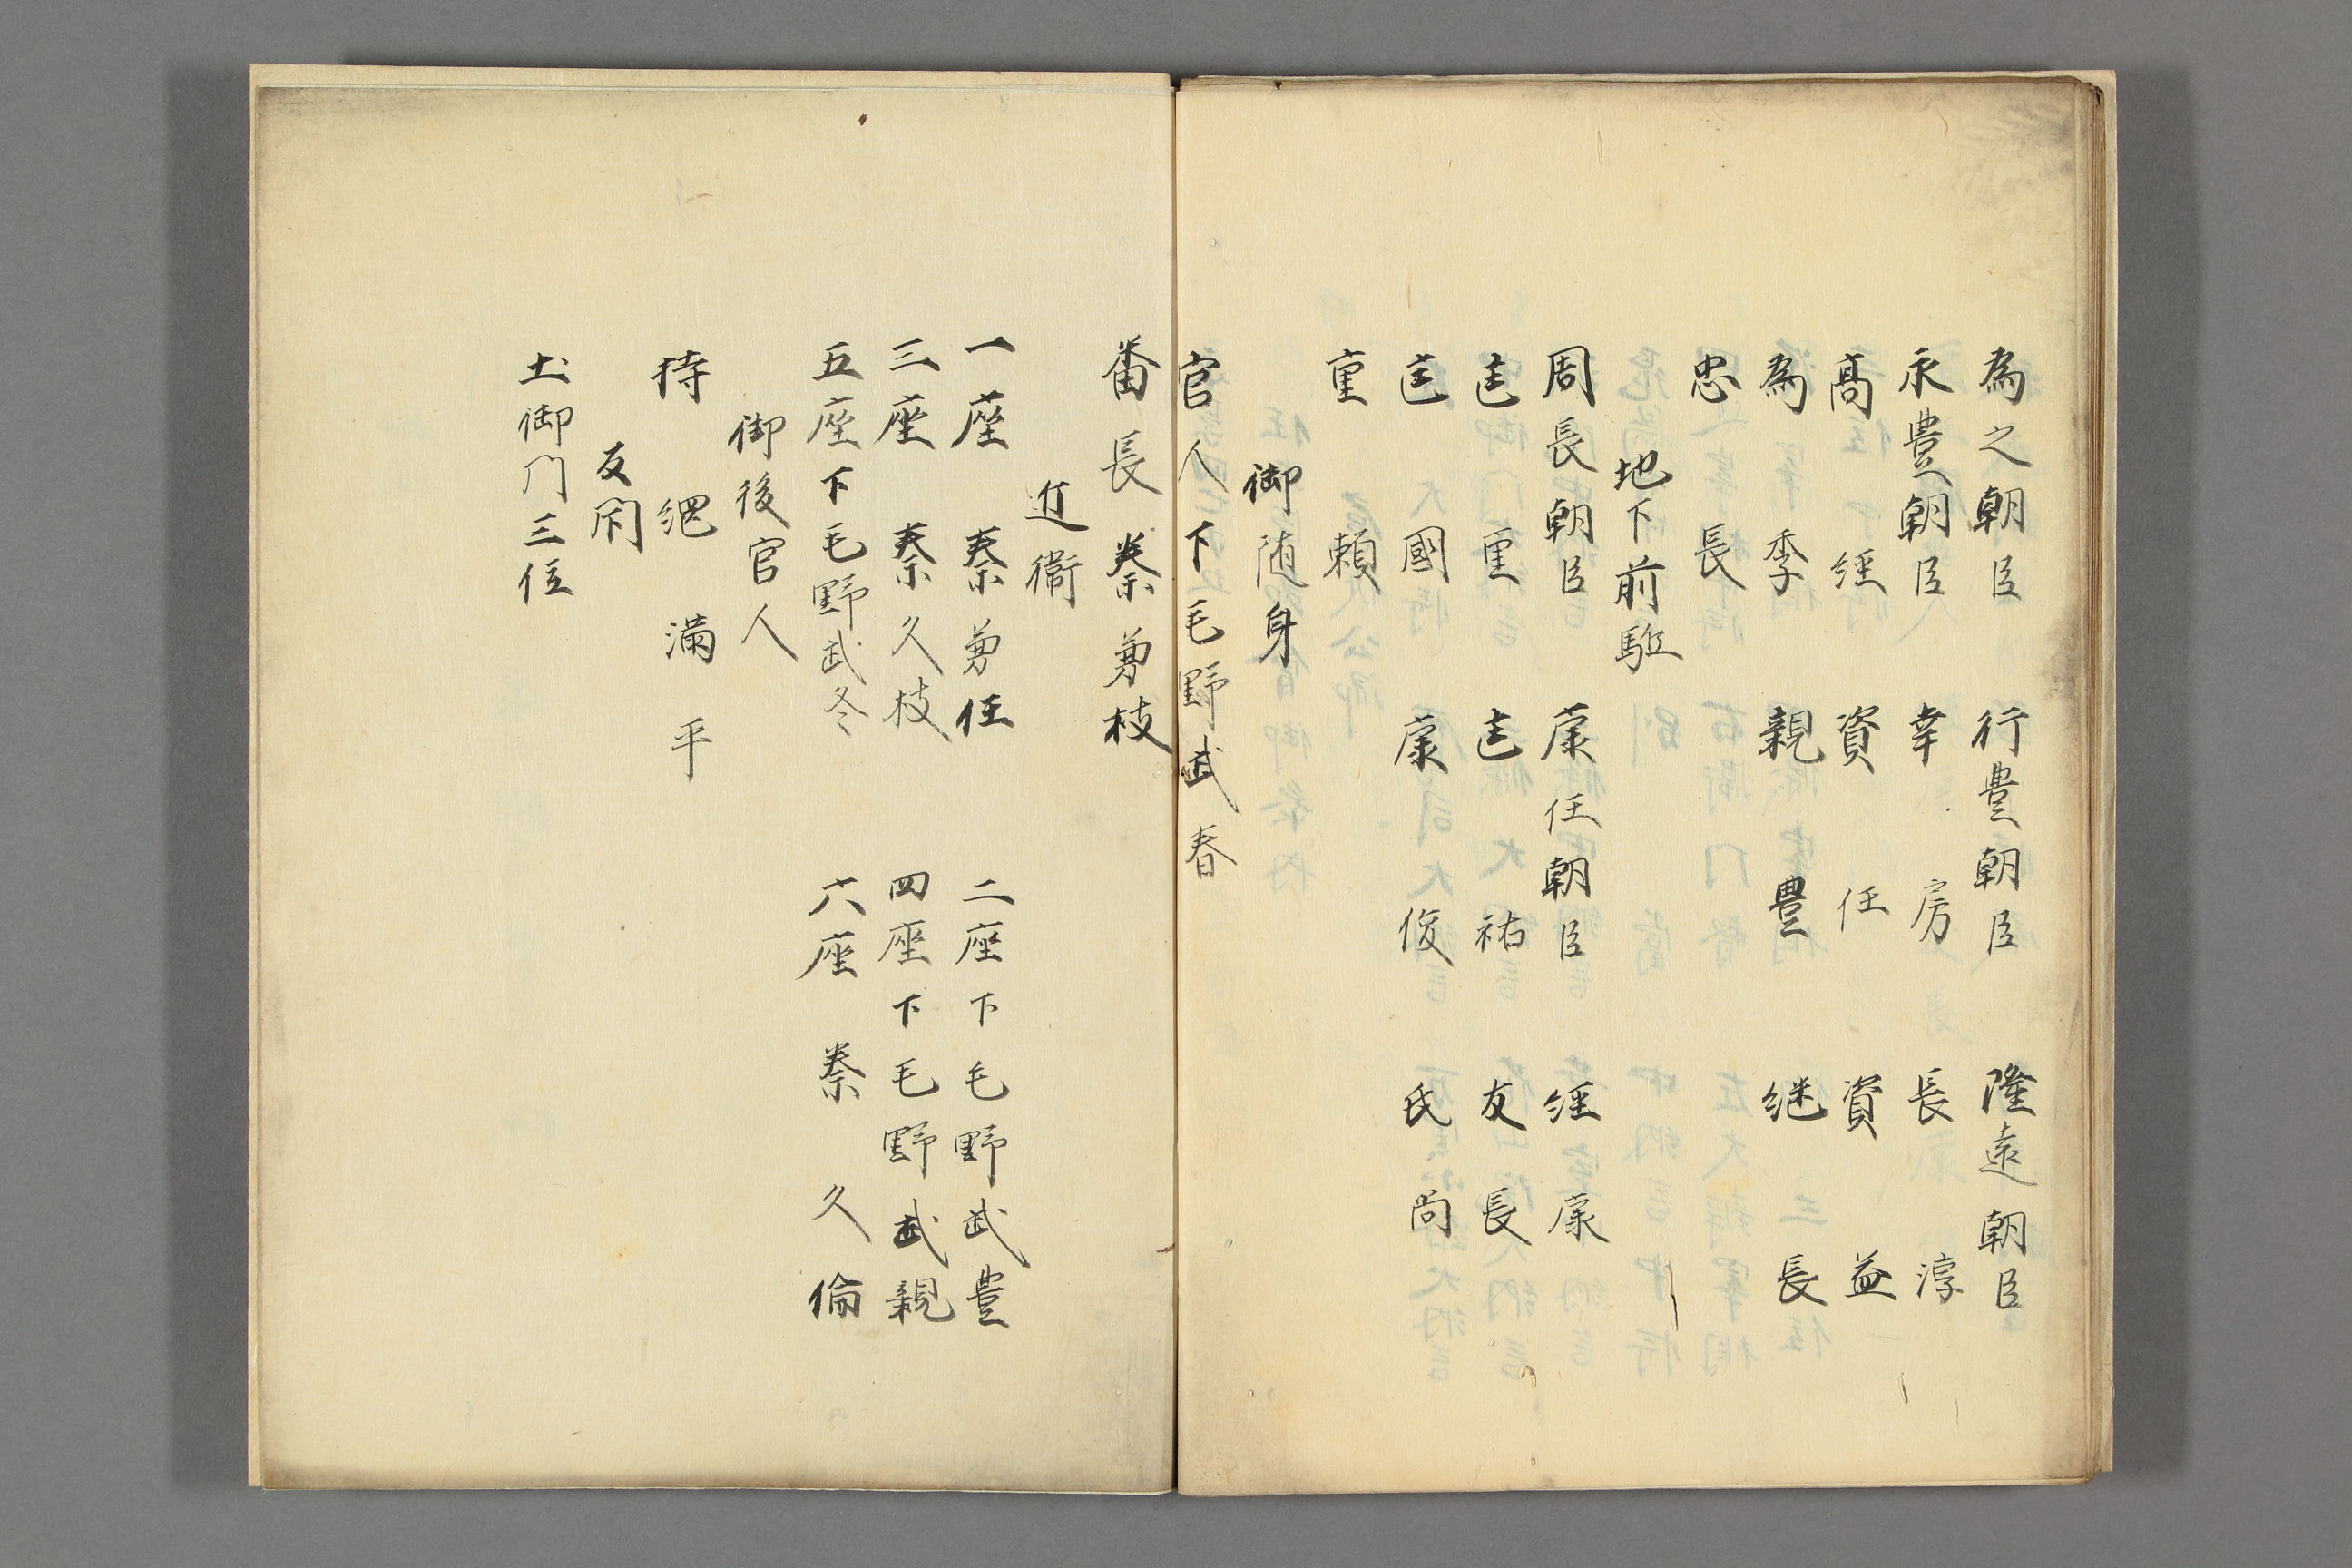 為之朝臣 行豊朝臣 隆遠朝臣
永豊朝臣 幸房 長淳
高経 資任 資益
為季 親豊 継長
忠長
地下前駈
周長朝臣 康任朝臣 経康
重 祐 友長
國 康俊 氏尚
重頼
御随身
官人下毛野武春
番長秦兼枝
近衛
一座 秦兼任 二座下毛野武豊
三座 秦久枝 四座下毛野武親
五座下毛野武冬 六座 秦久倫
御後官人
持 満平
反閇
土御門三位